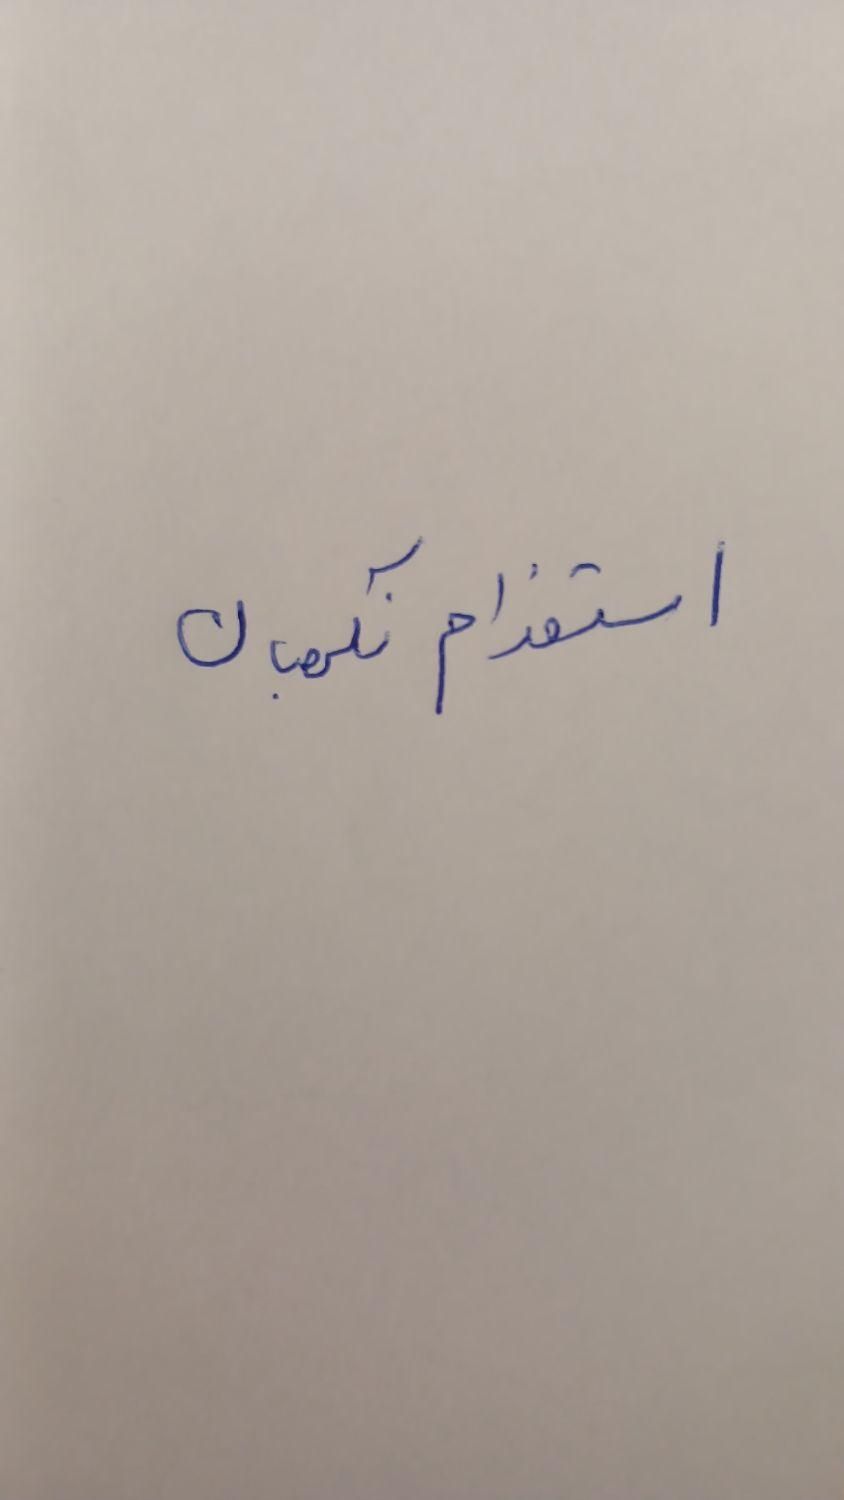 استخدام نگهبان